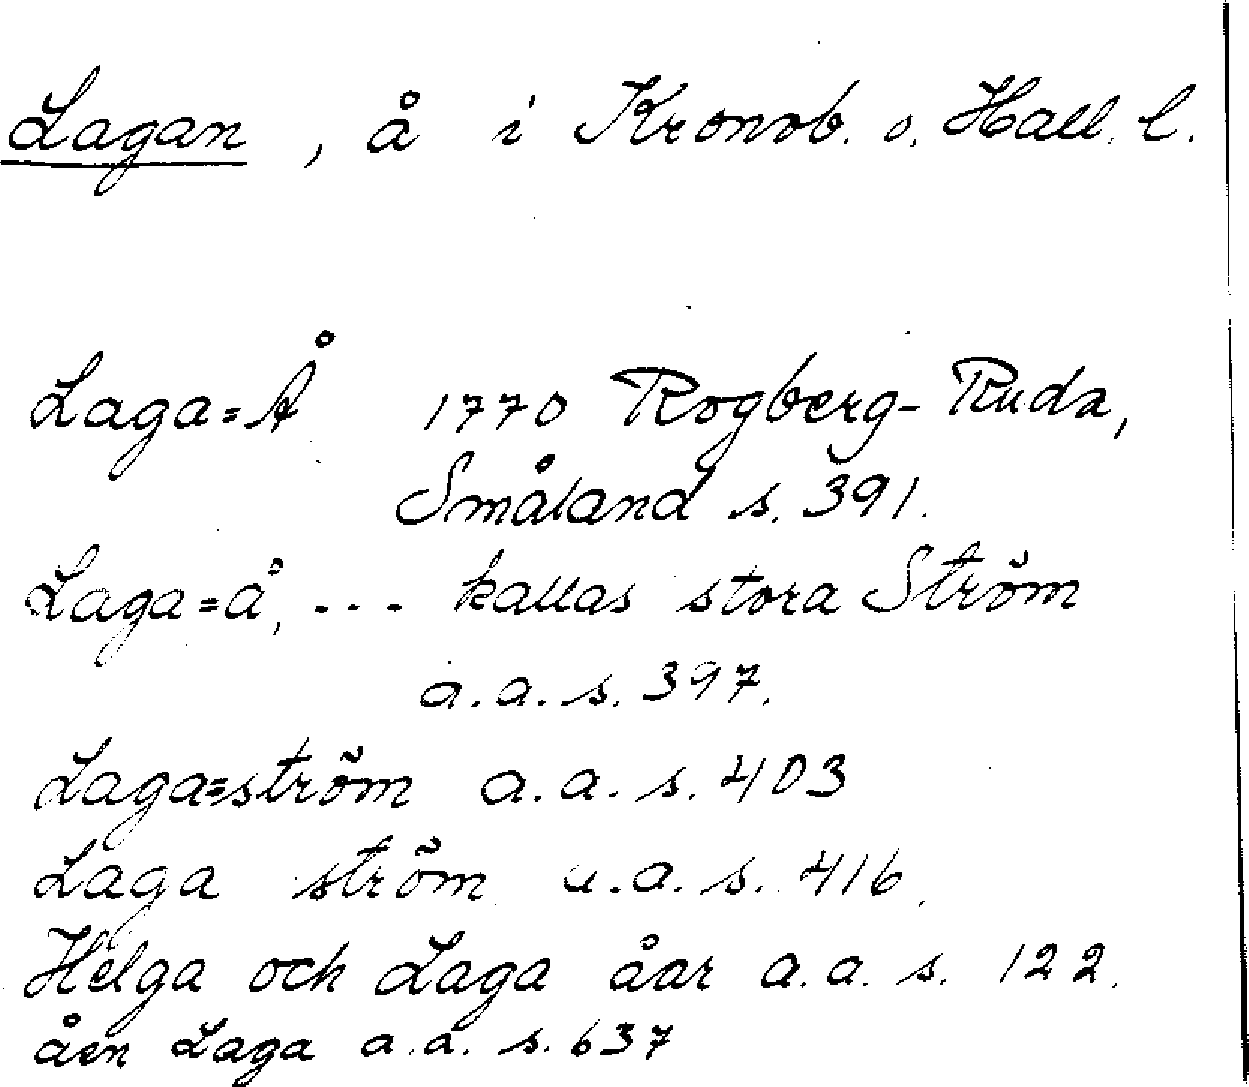 Lagan, å i Kronob. o. Hall. l.
Laga=Å 1770 Rogberg-Ruda,
Småland s. 391.
Laga=å, ... kallas stora Ström
a.a. s. 397.
Laga=ström a.a. s. 403
Laga ström a.a. s. 416.
Helga och Laga åar a.a. s. 122.
åen Laga a.a. s. 637